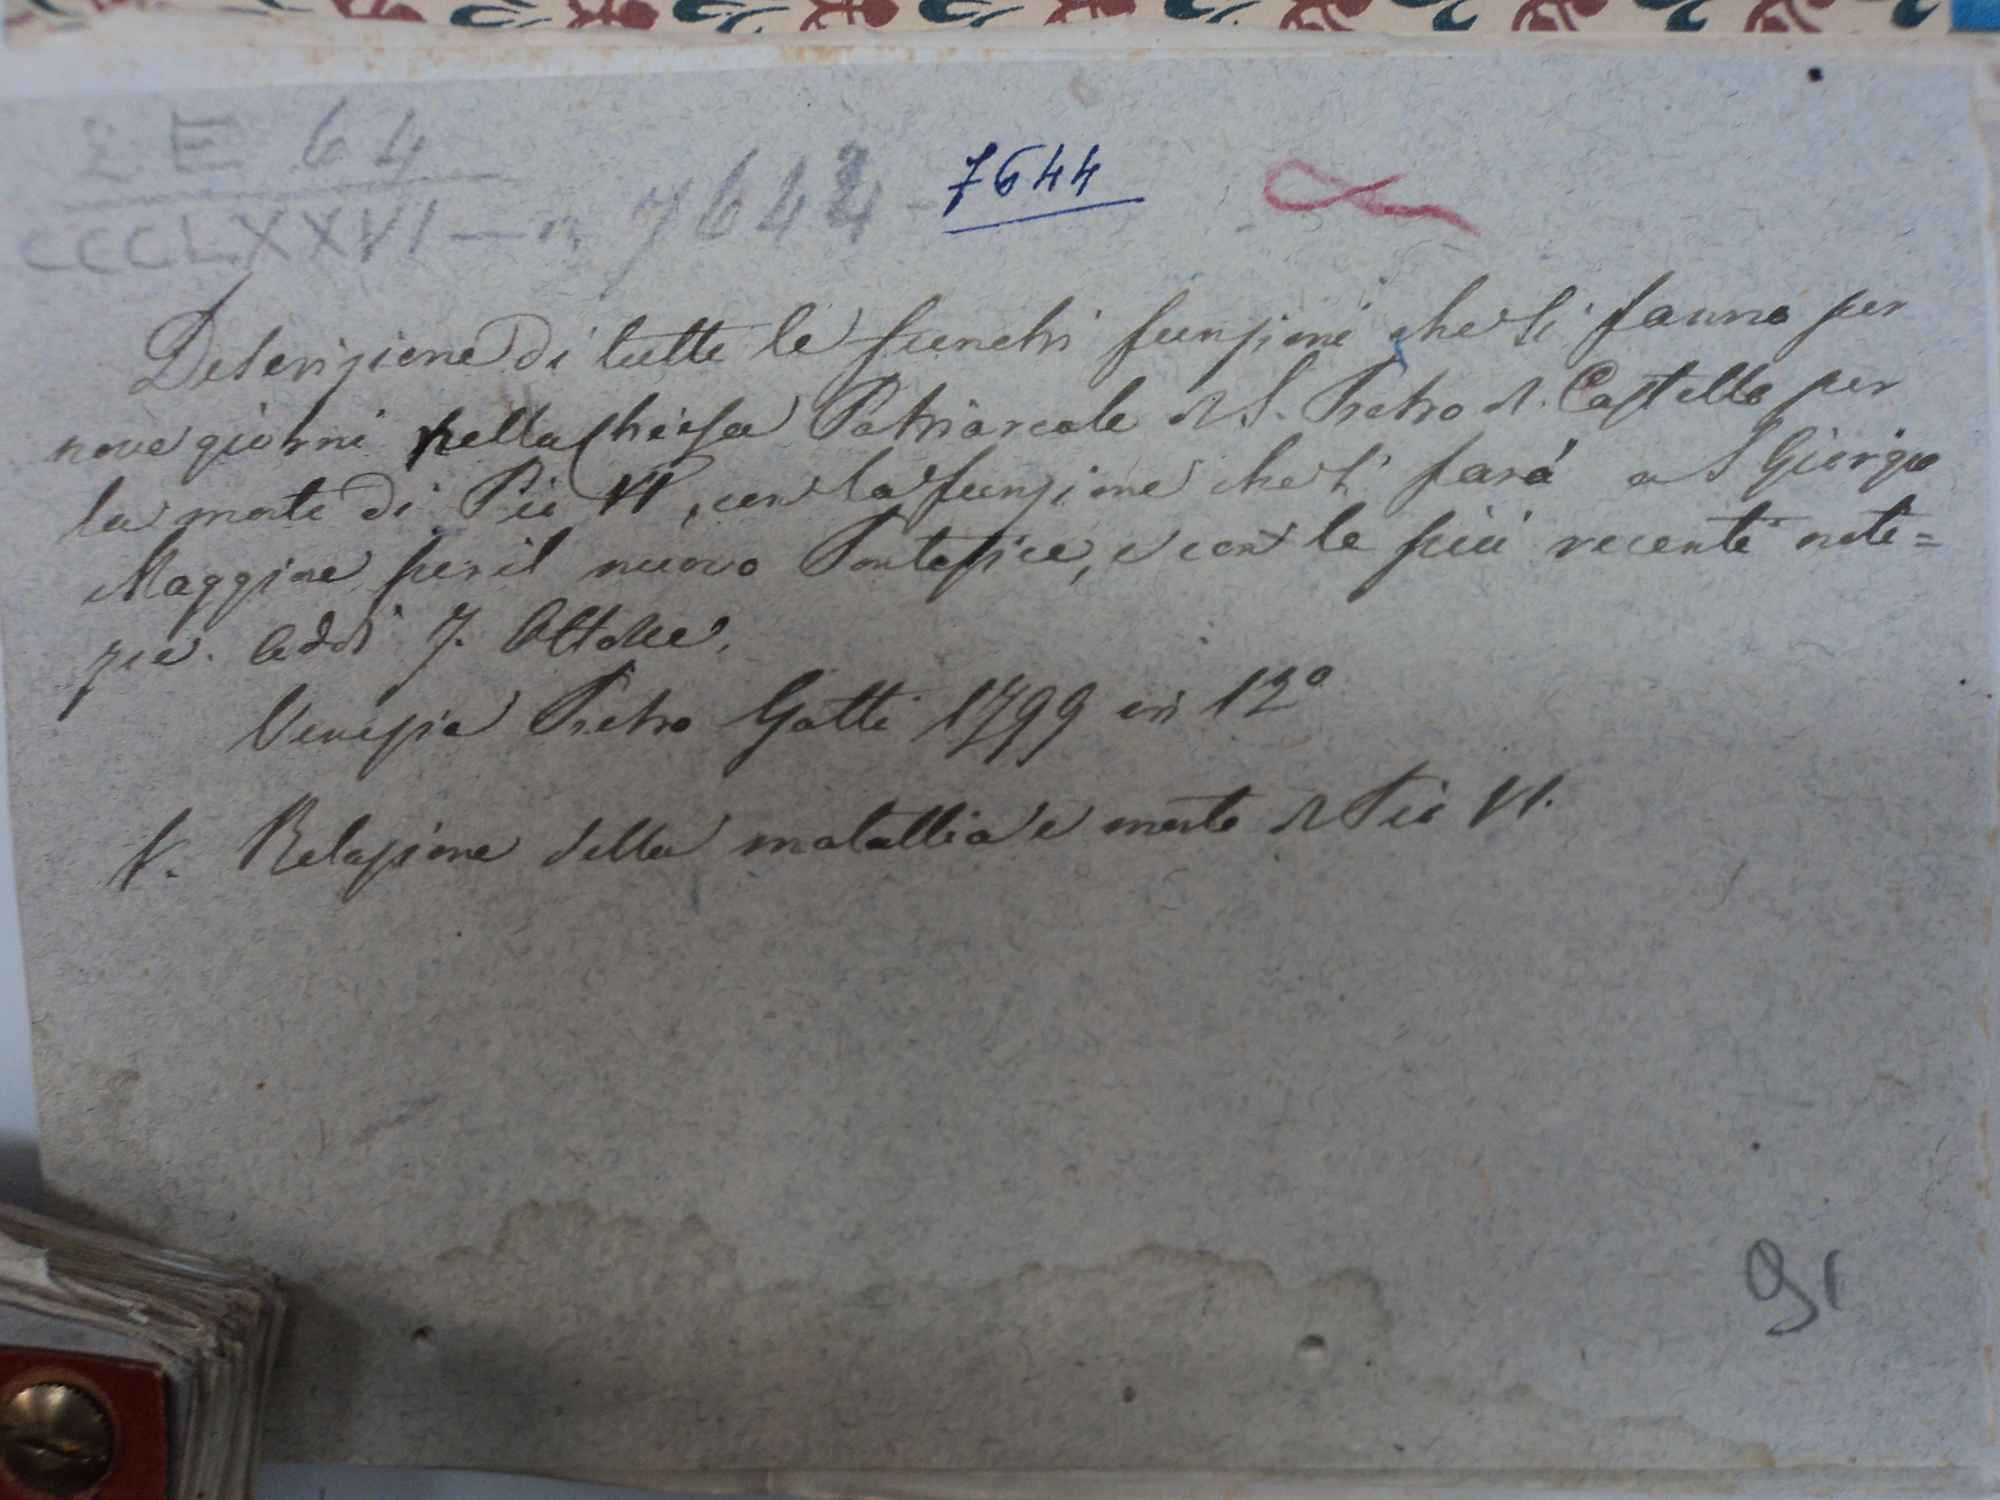 E 64
CCCLXXVI — n. 7644 - 7644
Descrizione di tutte le funebri funzioni che si fanno per
nove giorni nella Chiesa Patriarcale di S. Pietro di Castello per
la morte di Pio VI, con la funzione che si fará a S Giorgio
Maggiore per il nuovo Pontefice, e con le più recenti noti=
zie. Addì 7. Ottobre.
Venezia Pietro Gatti 1799 in 12°
V. Relazione della malattia e morte di Pio VI.
91